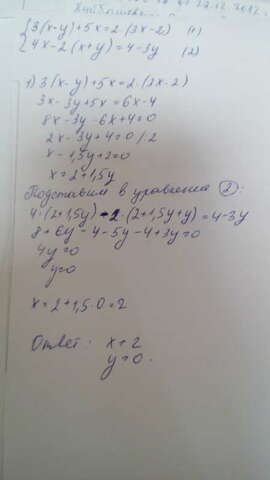 {3(x-y)+5x=2(3x-2) (1)
{4x-2(x+y)=4-3y (2)
1) 3(x-y)+5x=2(3x-2)
3x-3y+5x=6x-4
8x-3y-6x+4=0
2x-3y+4=0 /2
x-1,5y+2=0
x=2+1,5y
Подставим в уравнения (2):
4·(2+1,5y)-2·(2+1,5y+y)=4-3y
8+6y-4-5y-4+3y=0
4y=0
y=0
x=2+1,5·0=2
Ответ: x=2
y=0.